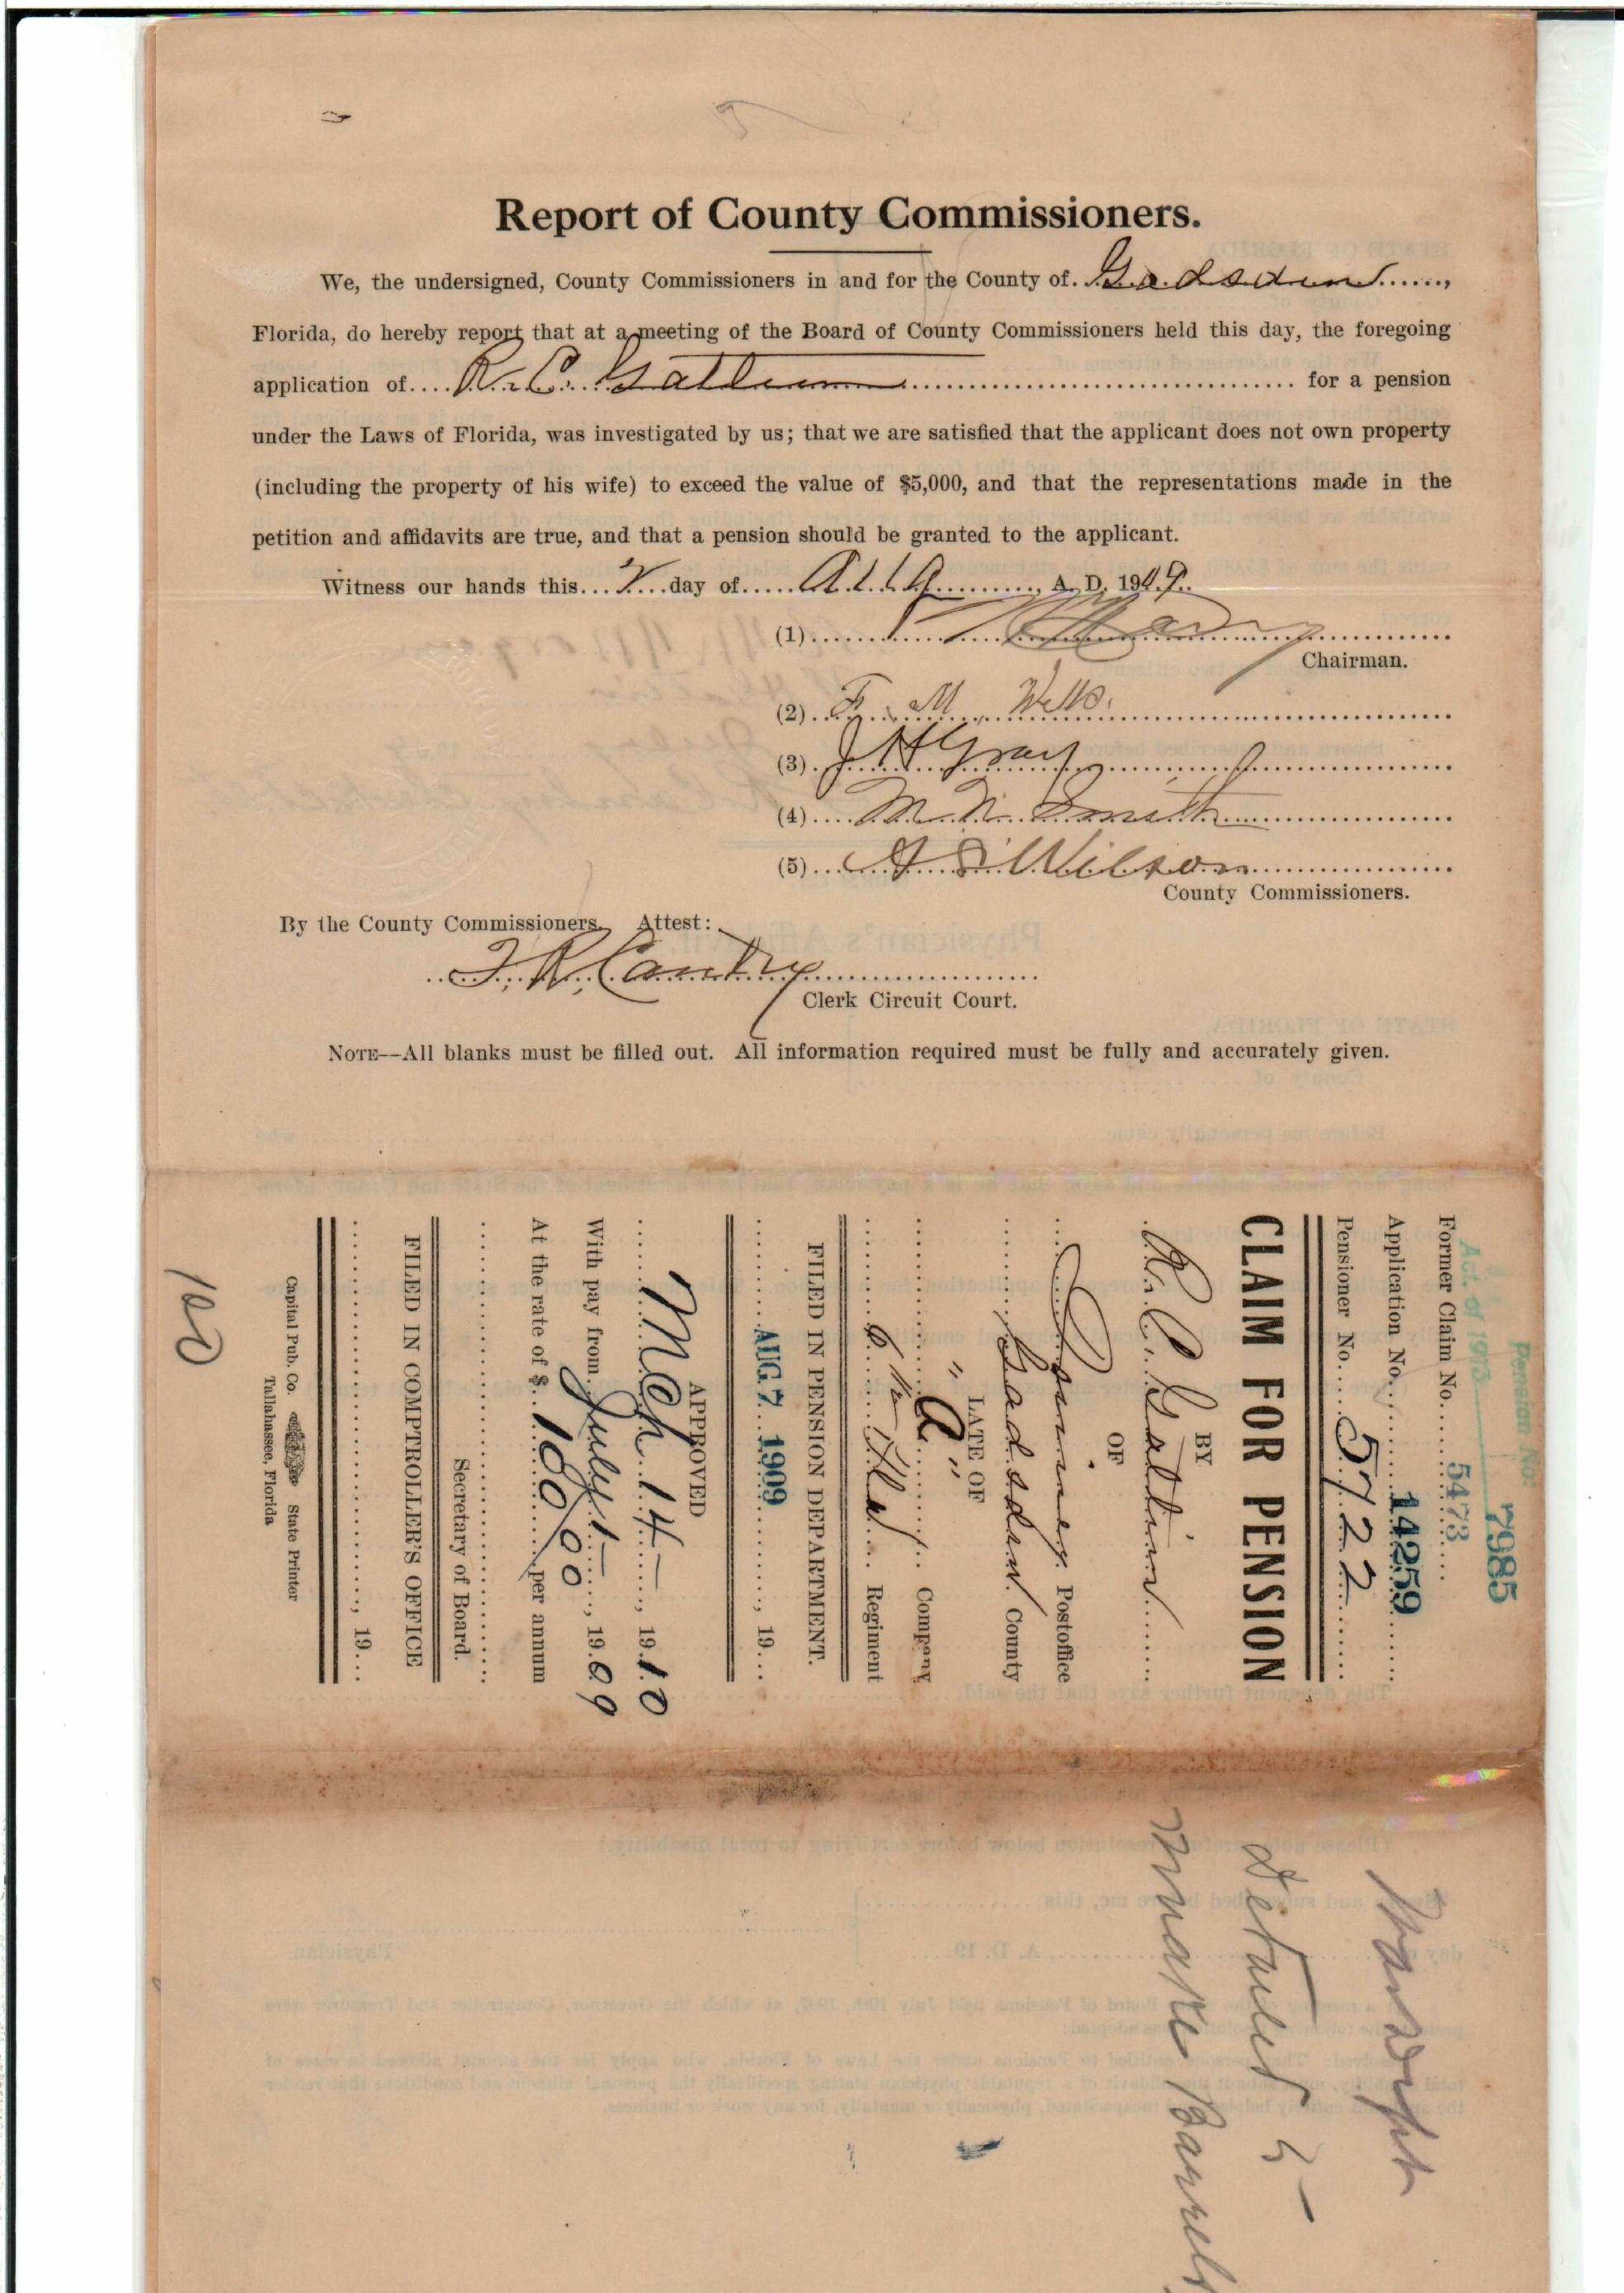 Report of County Commissioners.
We, the undersigned, County Commissioners in and for the County of Gadsden,
Florida, do hereby report that at a meeting of the Board of County Commissioners held this day, the foregoing
application of R. C. for a pension
under the Laws of Florida, was investigated by us; that we are satisfied that the applicant does not own property
(including the property of his wife) to exceed the value of $5,000, and that the representations made in the
petition and affidavits are true, and that a pension should be granted to the applicant.
Witness our hands this day of Aug, A. D. 1909.
(1)
Chairman.
(2) F. M. Wells.
(3) J H Gray
(4) M. N. Smith
(5) Wilson
County Commissioners.
By the County Commissioners. Attest:
Clerk Circuit Court.
NOTE--All blanks must be filled out. All information required must be fully and accurately given.
Pension No. 7985
Act of 1913
Former Claim No. 5473
Application No. 14259
Pensioner No. 5722
CLAIM FOR PENSION
BY
R. C. Gatlin
OF
Postoffice
Gadsden County
LATE OF
"a" Company
6 Fla Regiment
FILED IN PENSION DEPARTMENT.
AUG 7 1909, 19
APPROVED
Mch 14-, 1910
With pay from July 1-, 1909
At the rate of $ 100/00 per annum
Secretary of Board.
FILED IN COMPTROLLER'S OFFICE
, 19
Capital Pub. Co. State Printer
Tallahassee, Florida
100
detailed
make Barrels